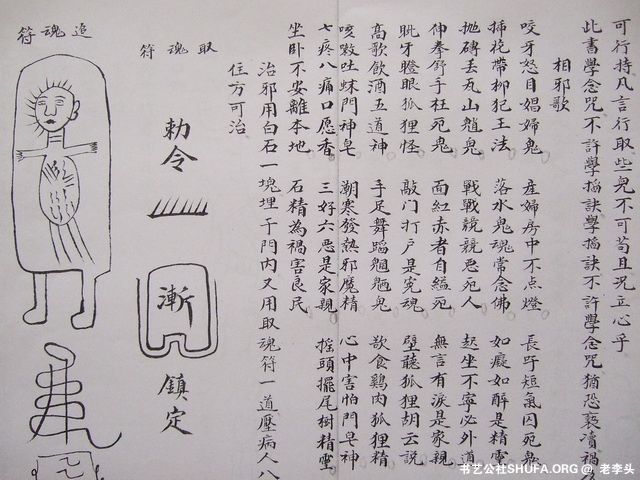 可行持凡言行取些兒不可苟且況立心乎
此書學念咒不許學搯訣學搯訣不許學念咒猶恐褻凟禍
相邪歌
咬牙怒目娼婦鬼 產婦房中不点燈 長吁短氣囚死鬼
插花帶柳犯王法 落水鬼魂常念佛 如癡如醉是精靈
抛磚丟瓦山魈鬼 戰戰競競惡死人 起坐不寧必外道
伸拳舒手枉死鬼 面紅赤者自縊死 無言有淚是家親
眦牙瞪眼狐狸怪 敲门打户是冤魂 壁聽狐狸胡云説
高歌飲酒五道神 手足舞蹈魍魎鬼 飲食鷄肉狐狸精
咳嗽吐痰門神皂 潮寒發熱邪魔精 心中害怕門皂神
七疼八痛口愿香 三好六惡是家親 摇頭擺尾樹精靈
坐卧不安離本地 石精為禍害良民
治邪用白石一塊埋于門内又用取魂符一道壓病人八
住方可治
取魂符
勅令
漸
鎮定
追魂符
书艺公社SHUFA.ORG @ 老李头